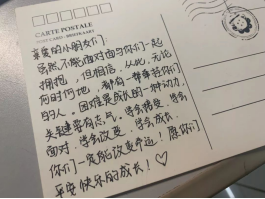 CARTE POSTALE
POST CARD · BRIEFKAART
亲爱的小朋友们:
虽然不能面对面与你们一起
拥抱,但相信,从此,无论
何时何地,都有一群挚爱你们
的人。困难是成长的一种动力,
关键要有志气。学会
面对,学会改变,学会成长,
你们一定能改变命运!愿你们
平安快乐的成长!♡